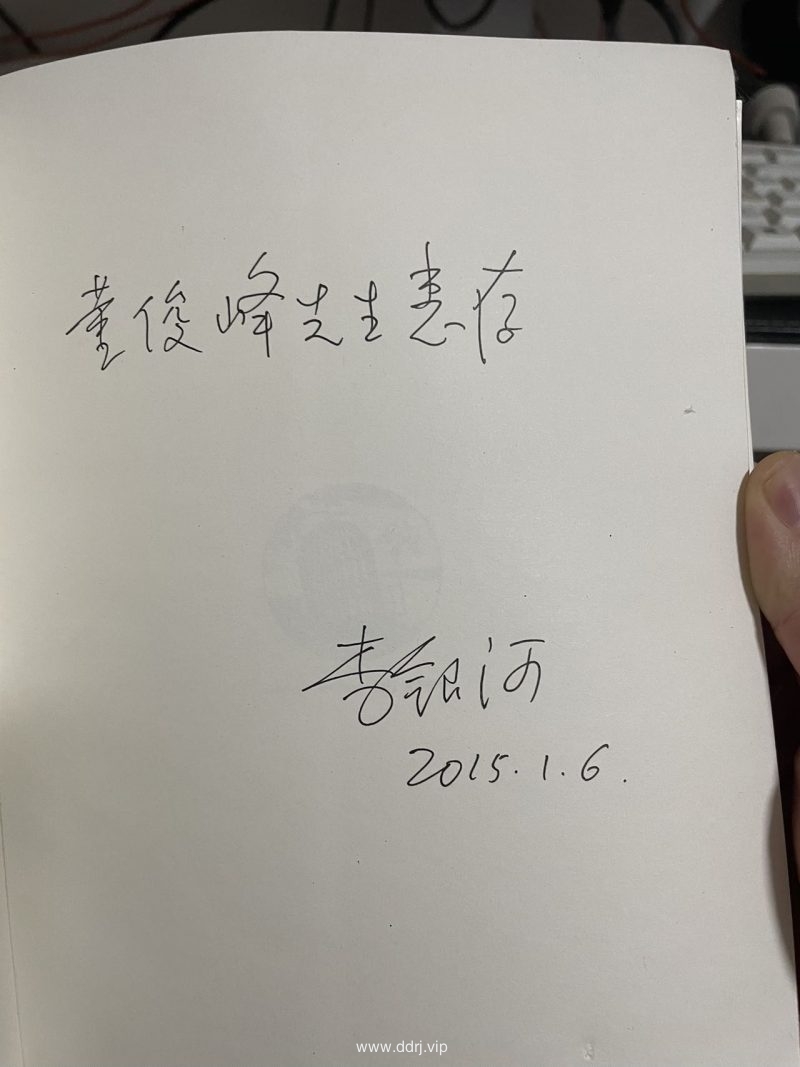 董俊峰先生惠存
李银河
2015.1.6.
www.ddrj.vip